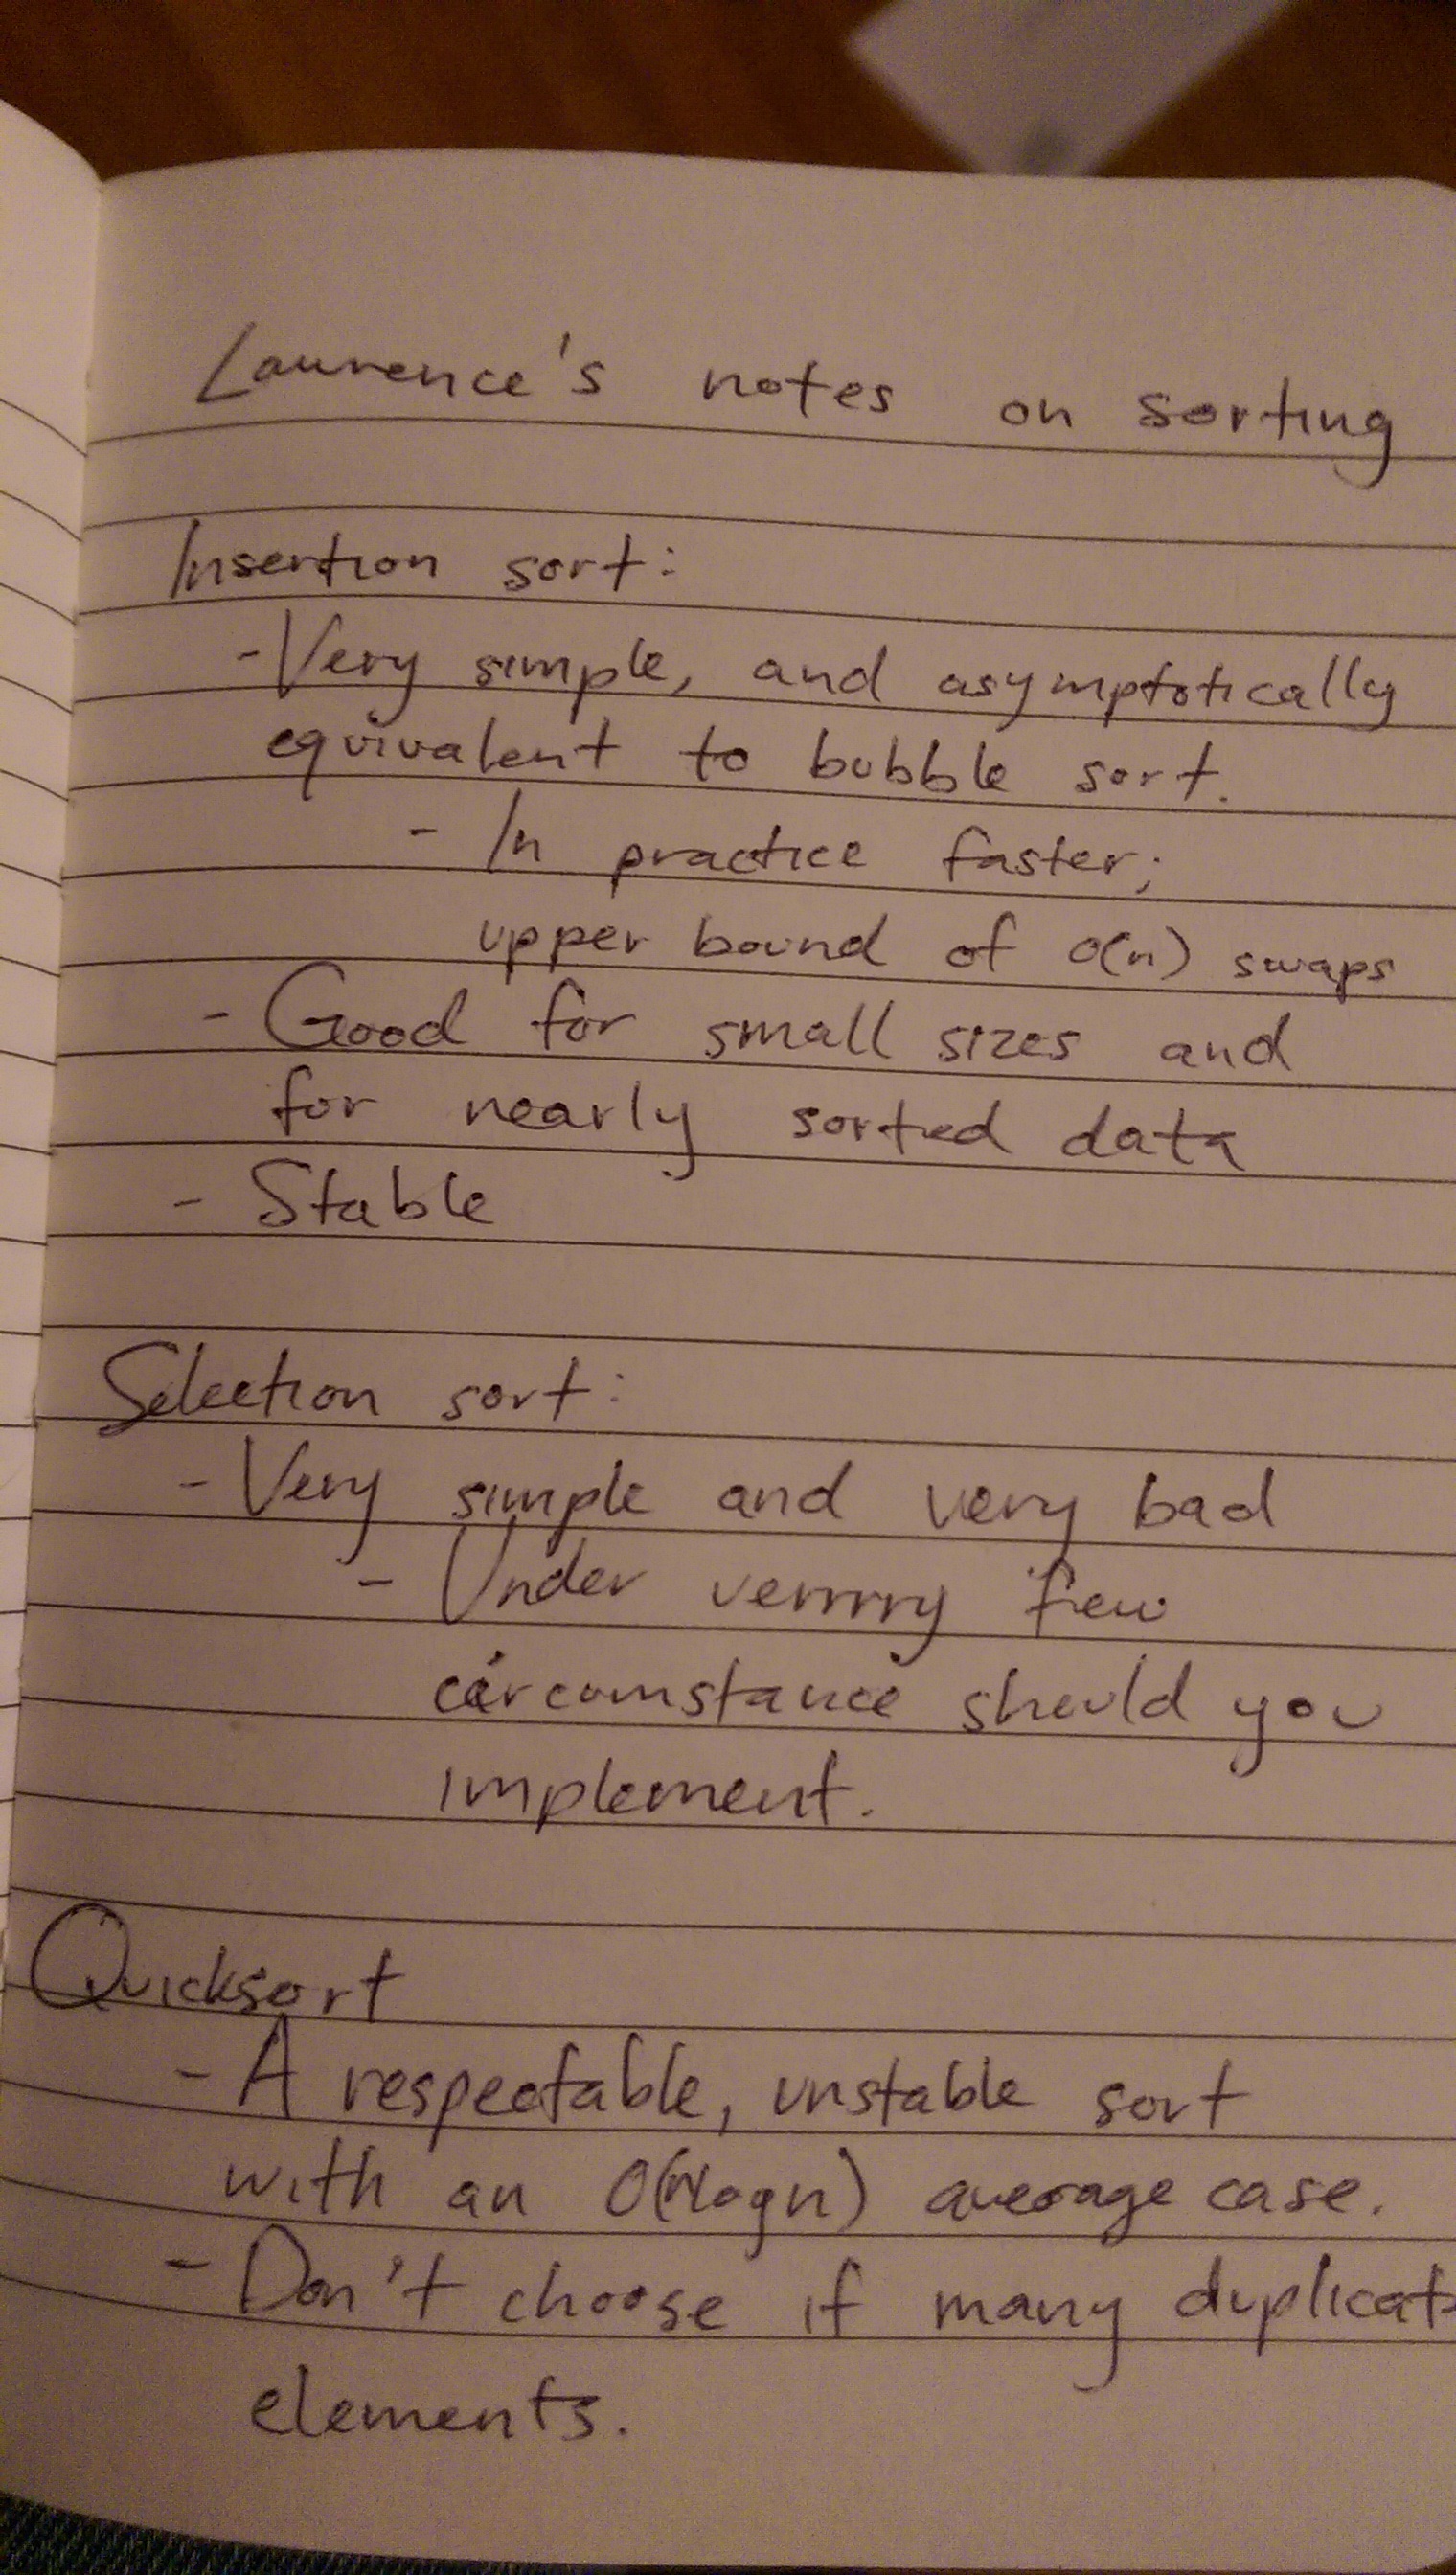 Laurence's notes on sorting
Insertion sort:
- Very simple, and asymptotically
equivalent to bubble sort.
- In practice faster;
upper bound of O(n) swaps
- Good for small sizes and
for nearly sorted data
- Stable
Selection sort:
- Very simple and very bad
- Under verrrry few
circumstance should you
implement.
Quicksort
- A respectable, unstable sort
with an O(nlogn) average case.
- Don't choose if many duplicate
elements.